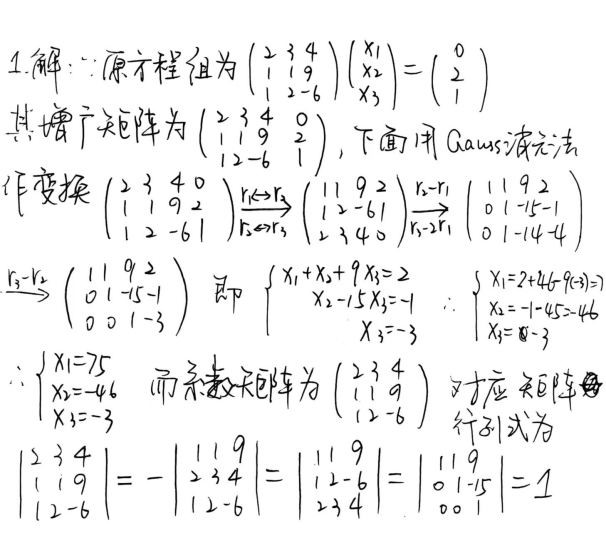 1.解:∵原方程组为 (2 3 4; 1 1 9; 1 2 -6) (x1; x2; x3) = (0; 2; 1)
其增广矩阵为 (2 3 4 0; 1 1 9 2; 1 2 -6 1), 下面用Gauss消元法
作变换 (2 3 4 0; 1 1 9 2; 1 2 -6 1) r1↔r2 r2↔r3 → (1 1 9 2; 1 2 -6 1; 2 3 4 0) r2-r1 r3-2r1 → (1 1 9 2; 0 1 -15 -1; 0 1 -14 -4)
r3-r2 → (1 1 9 2; 0 1 -15 -1; 0 0 1 -3) 即 { x1+x2+9x3=2; x2-15x3=-1; x3=-3 ∴ { x1=2+46-9(-3)=7; x2=-1-45=-46; x3=-3
∴ { x1=75; x2=-46; x3=-3 而系数矩阵为 (2 3 4; 1 1 9; 1 2 -6) 对应矩阵
行列式为
|2 3 4; 1 1 9; 1 2 -6| = -|1 1 9; 2 3 4; 1 2 -6| = |1 1 9; 1 2 -6; 2 3 4| = |1 1 9; 0 1 -15; 0 0 1| = 1